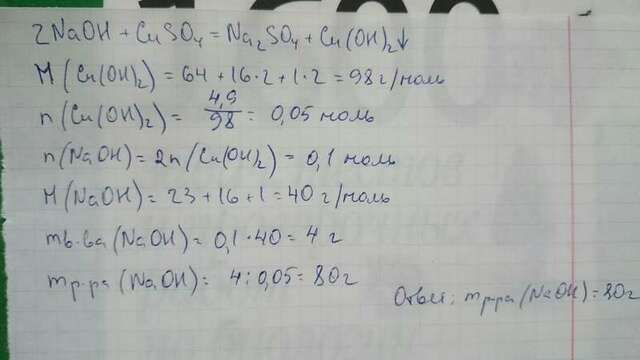 2NaOH + CuSO₄ = Na₂SO₄ + Cu(OH)₂↓
M(Cu(OH)₂) = 64 + 16·2 + 1·2 = 98 г/моль
n(Cu(OH)₂) = 4,9/98 = 0,05 моль
n(NaOH) = 2n(Cu(OH)₂) = 0,1 моль
M(NaOH) = 23 + 16 + 1 = 40 г/моль
mв-ва(NaOH) = 0,1·40 = 4 г
mр-ра(NaOH) = 4:0,05 = 80г
Ответ: mр-ра(NaOH) = 80г